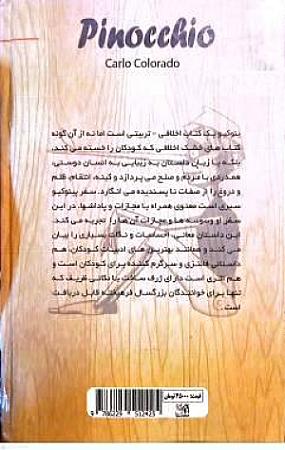 Pinocchio
Carlo Colorado
پنوکیو یک کتاب اخلاقی - تربیتی است اما نه از آن گونه
کتاب های خشک اخلاقی که کودکان را خسته می کند،
بلکه با زبان داستان به زیبایی به انسان دوستی،
همدردی با مردم و صلح می پردازد و کینه، انتقام، ظلم
و دروغ را از صفات نا پسندیده می انگارد. سفر پینوکیو
سیری است معنوی همراه با مجازات و پاداشها. در این
سفر او وسوسه ها و مجازات آن ها را تجربه می کند.
این داستان معانی، احساسات و نکات بسیاری را بیان
می کند و همانند بهترین های ادبیات کودکان، هم
داستانی فانتزی و سرگرم کننده برای کودکان است و
هم اثری است دارای ژرف ساخت با نکاتی ظریف که
تنها برای خوانندگان بزرگسال فرهیخته قابل دریافت
است.
قیمت: ۲۵۰۰۰ تومان
9 786229 512425